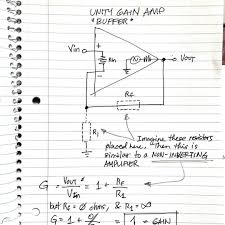 UNITY GAIN AMP
"BUFFER"
Vin
+
Rin
-
Vout
RF
R1
Imagine these resistors
placed here, then this is
similar to a NON-INVERTING
AMPLIFIER
G = Vout / Vin = 1 + RF / R1
but RF = Ø ohms, & R1 = ∞
G = 1 +
1 = GAIN